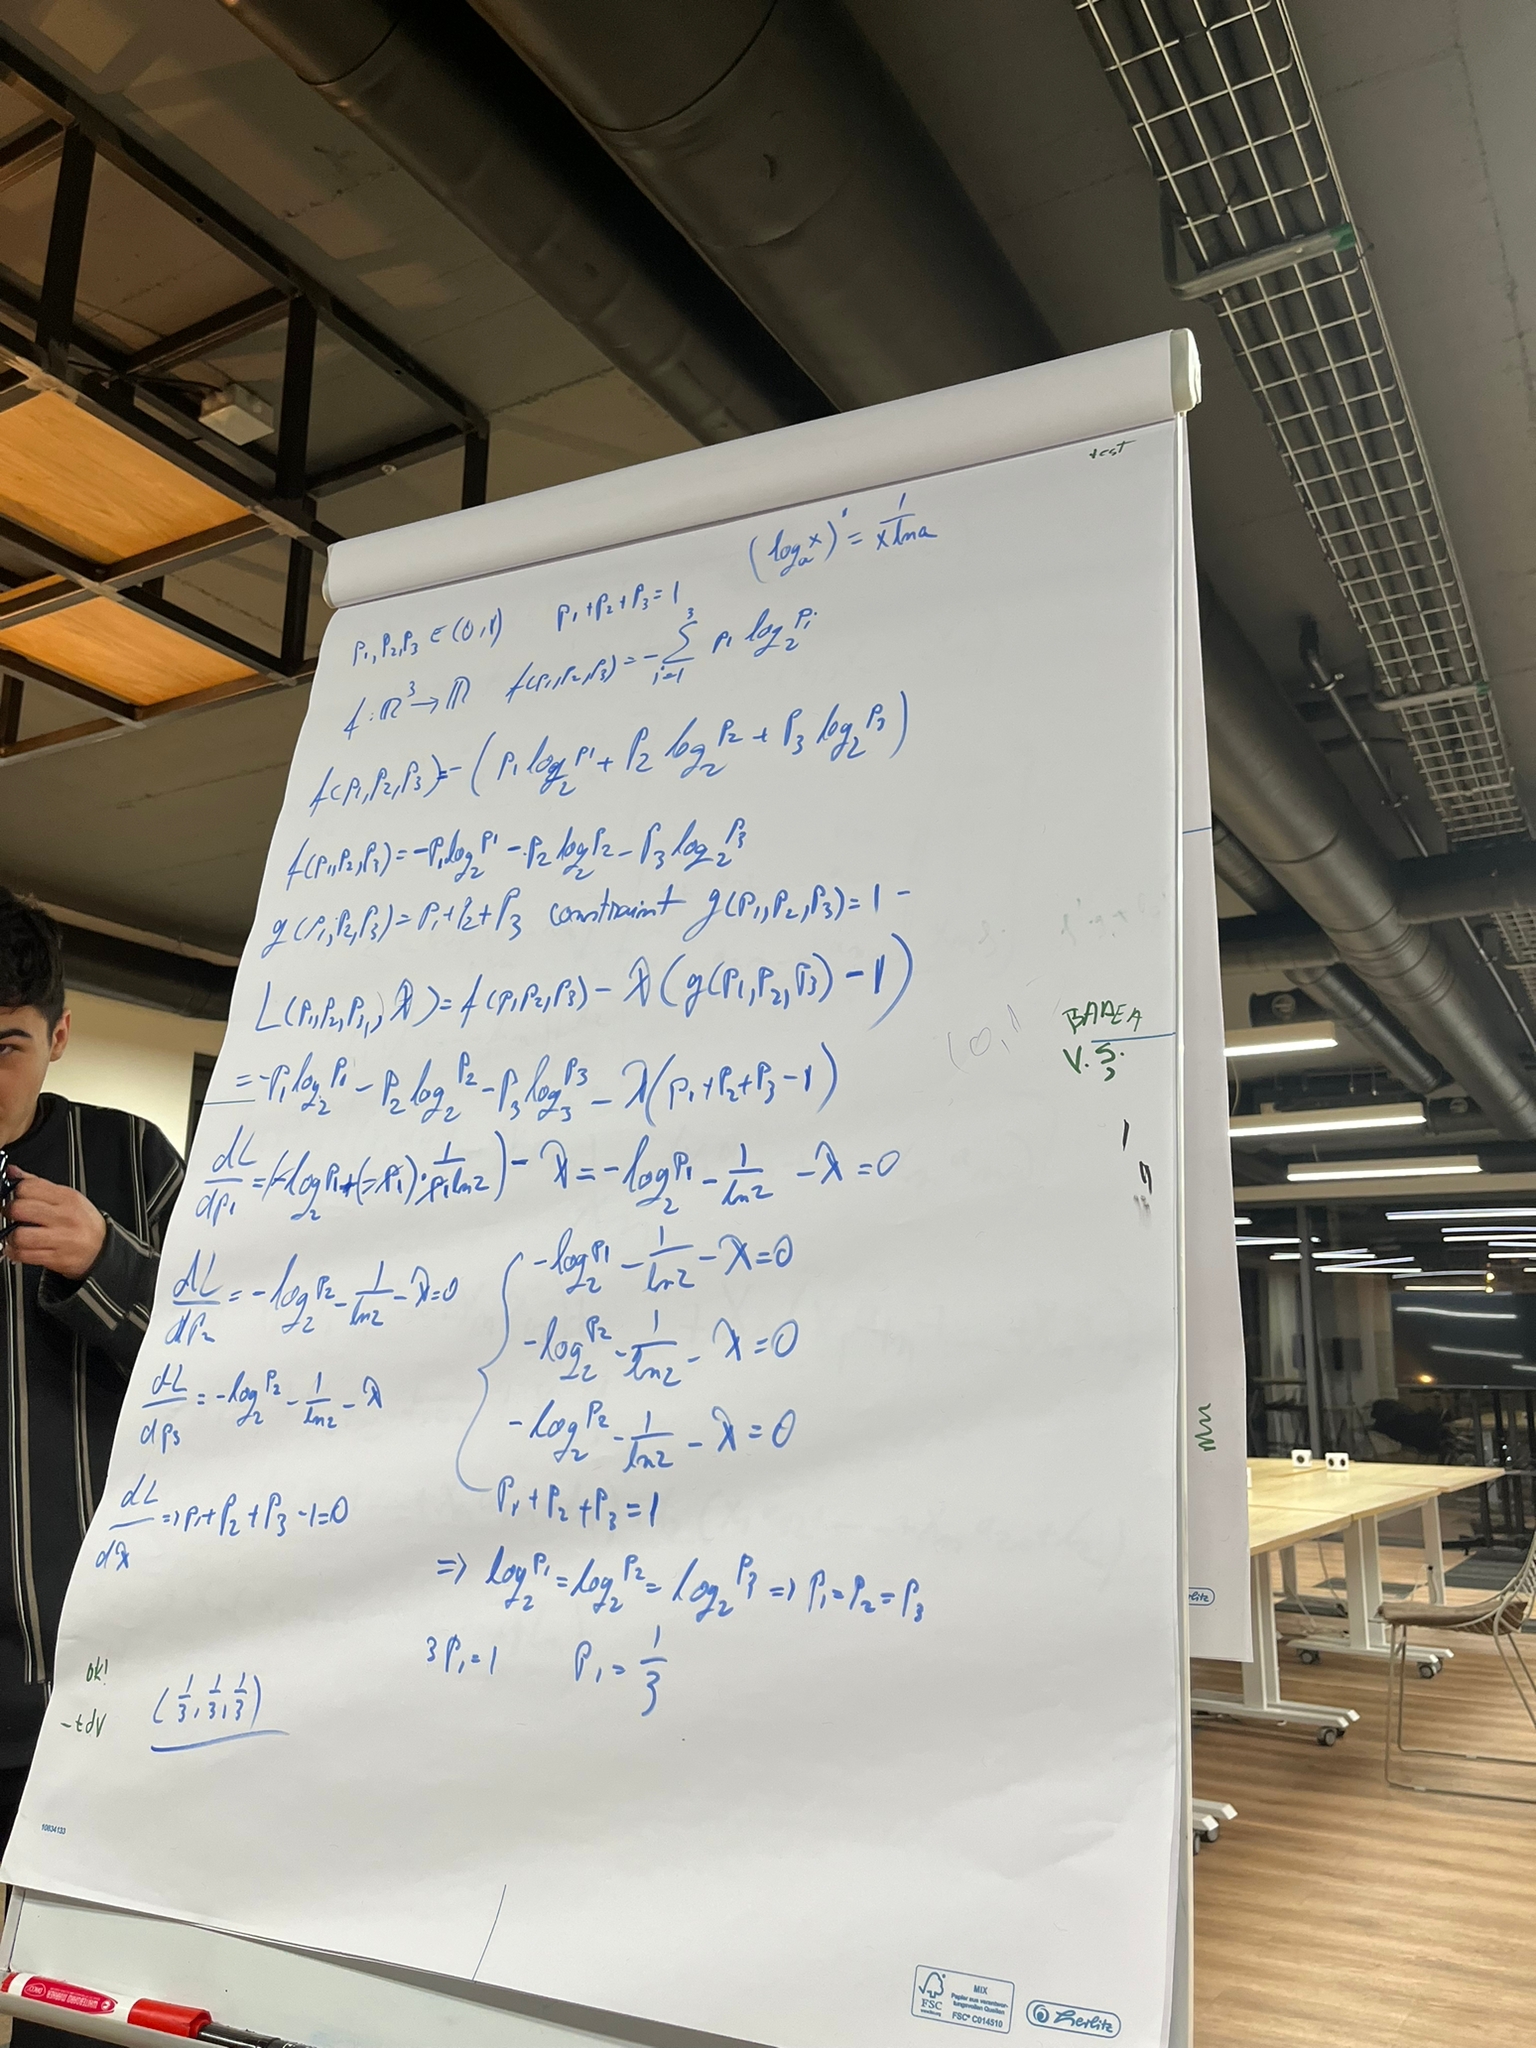 test
(log_a x)' = 1/(x ln a)
p₁, p₂, p₃ ∈ (0,1)   p₁+p₂+p₃=1
f: ℝ³ → ℝ   f(p₁,p₂,p₃) = -∑_{i=1}^{3} pᵢ log₂ pᵢ
f(p₁,p₂,p₃) = -(p₁ log₂ p₁ + p₂ log₂ p₂ + p₃ log₂ p₃)
f(p₁,p₂,p₃) = -p₁ log₂ p₁ - p₂ log₂ p₂ - p₃ log₂ p₃
g(p₁,p₂,p₃) = p₁+p₂+p₃ constraint g(p₁,p₂,p₃) = 1 -
L(p₁,p₂,p₃,λ) = f(p₁,p₂,p₃) - λ(g(p₁,p₂,p₃) - 1)
= -p₁ log₂ p₁ - p₂ log₂ p₂ - p₃ log₃ p₃ - λ(p₁+p₂+p₃-1)
dL/dp₁ = (-log₂ p₁ + (-p₁)·1/(p₁ ln2)) - λ = -log₂ p₁ - 1/ln2 - λ = 0
dL/dp₂ = -log₂ p₂ - 1/ln2 - λ = 0
dL/dp₃ = -log₂ p₂ - 1/ln2 - λ
dL/dλ => p₁+p₂+p₃-1=0
{ -log₂ p₁ - 1/ln2 - λ = 0
-log₂ p₂ - 1/ln2 - λ = 0
-log₂ p₂ - 1/ln2 - λ = 0
p₁+p₂+p₃=1
=> log₂ p₁ = log₂ p₂ = log₂ p₃ => p₁=p₂=p₃
3p₁=1   p₁ = 1/3
(1/3, 1/3, 1/3)
ok!
-tdv
BADEA
V. S.
(0,1
10634133
FSC
MIX
Papier aus verantwortungsvollen Quellen
FSC® C014510
Herlitz
rlitz